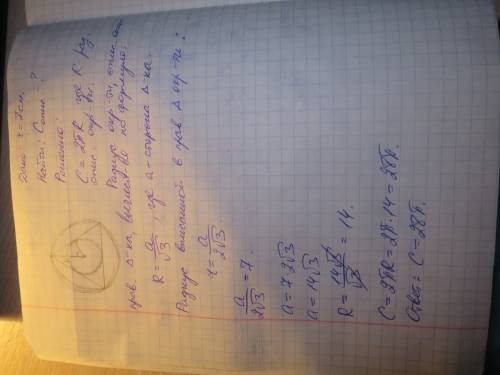 Дано: r = 7 см.
Найти: C опис - ?
Решение:
C = 2πR, где R - рад.
опис. окр-ти.
Радиус окр-ти, опис. ок.
прав. Δ-ка, вычисл. по формуле:
R = a/√3, где a - сторона Δ-ка.
Радиус вписанной в прав. Δ окр-ти:
r = a/2√3
a/2√3 = 7.
a = 7·2√3
a = 14√3
R = 14√3/√3 = 14.
C = 2πR = 2π·14 = 28π.
Ответ: C = 28π.